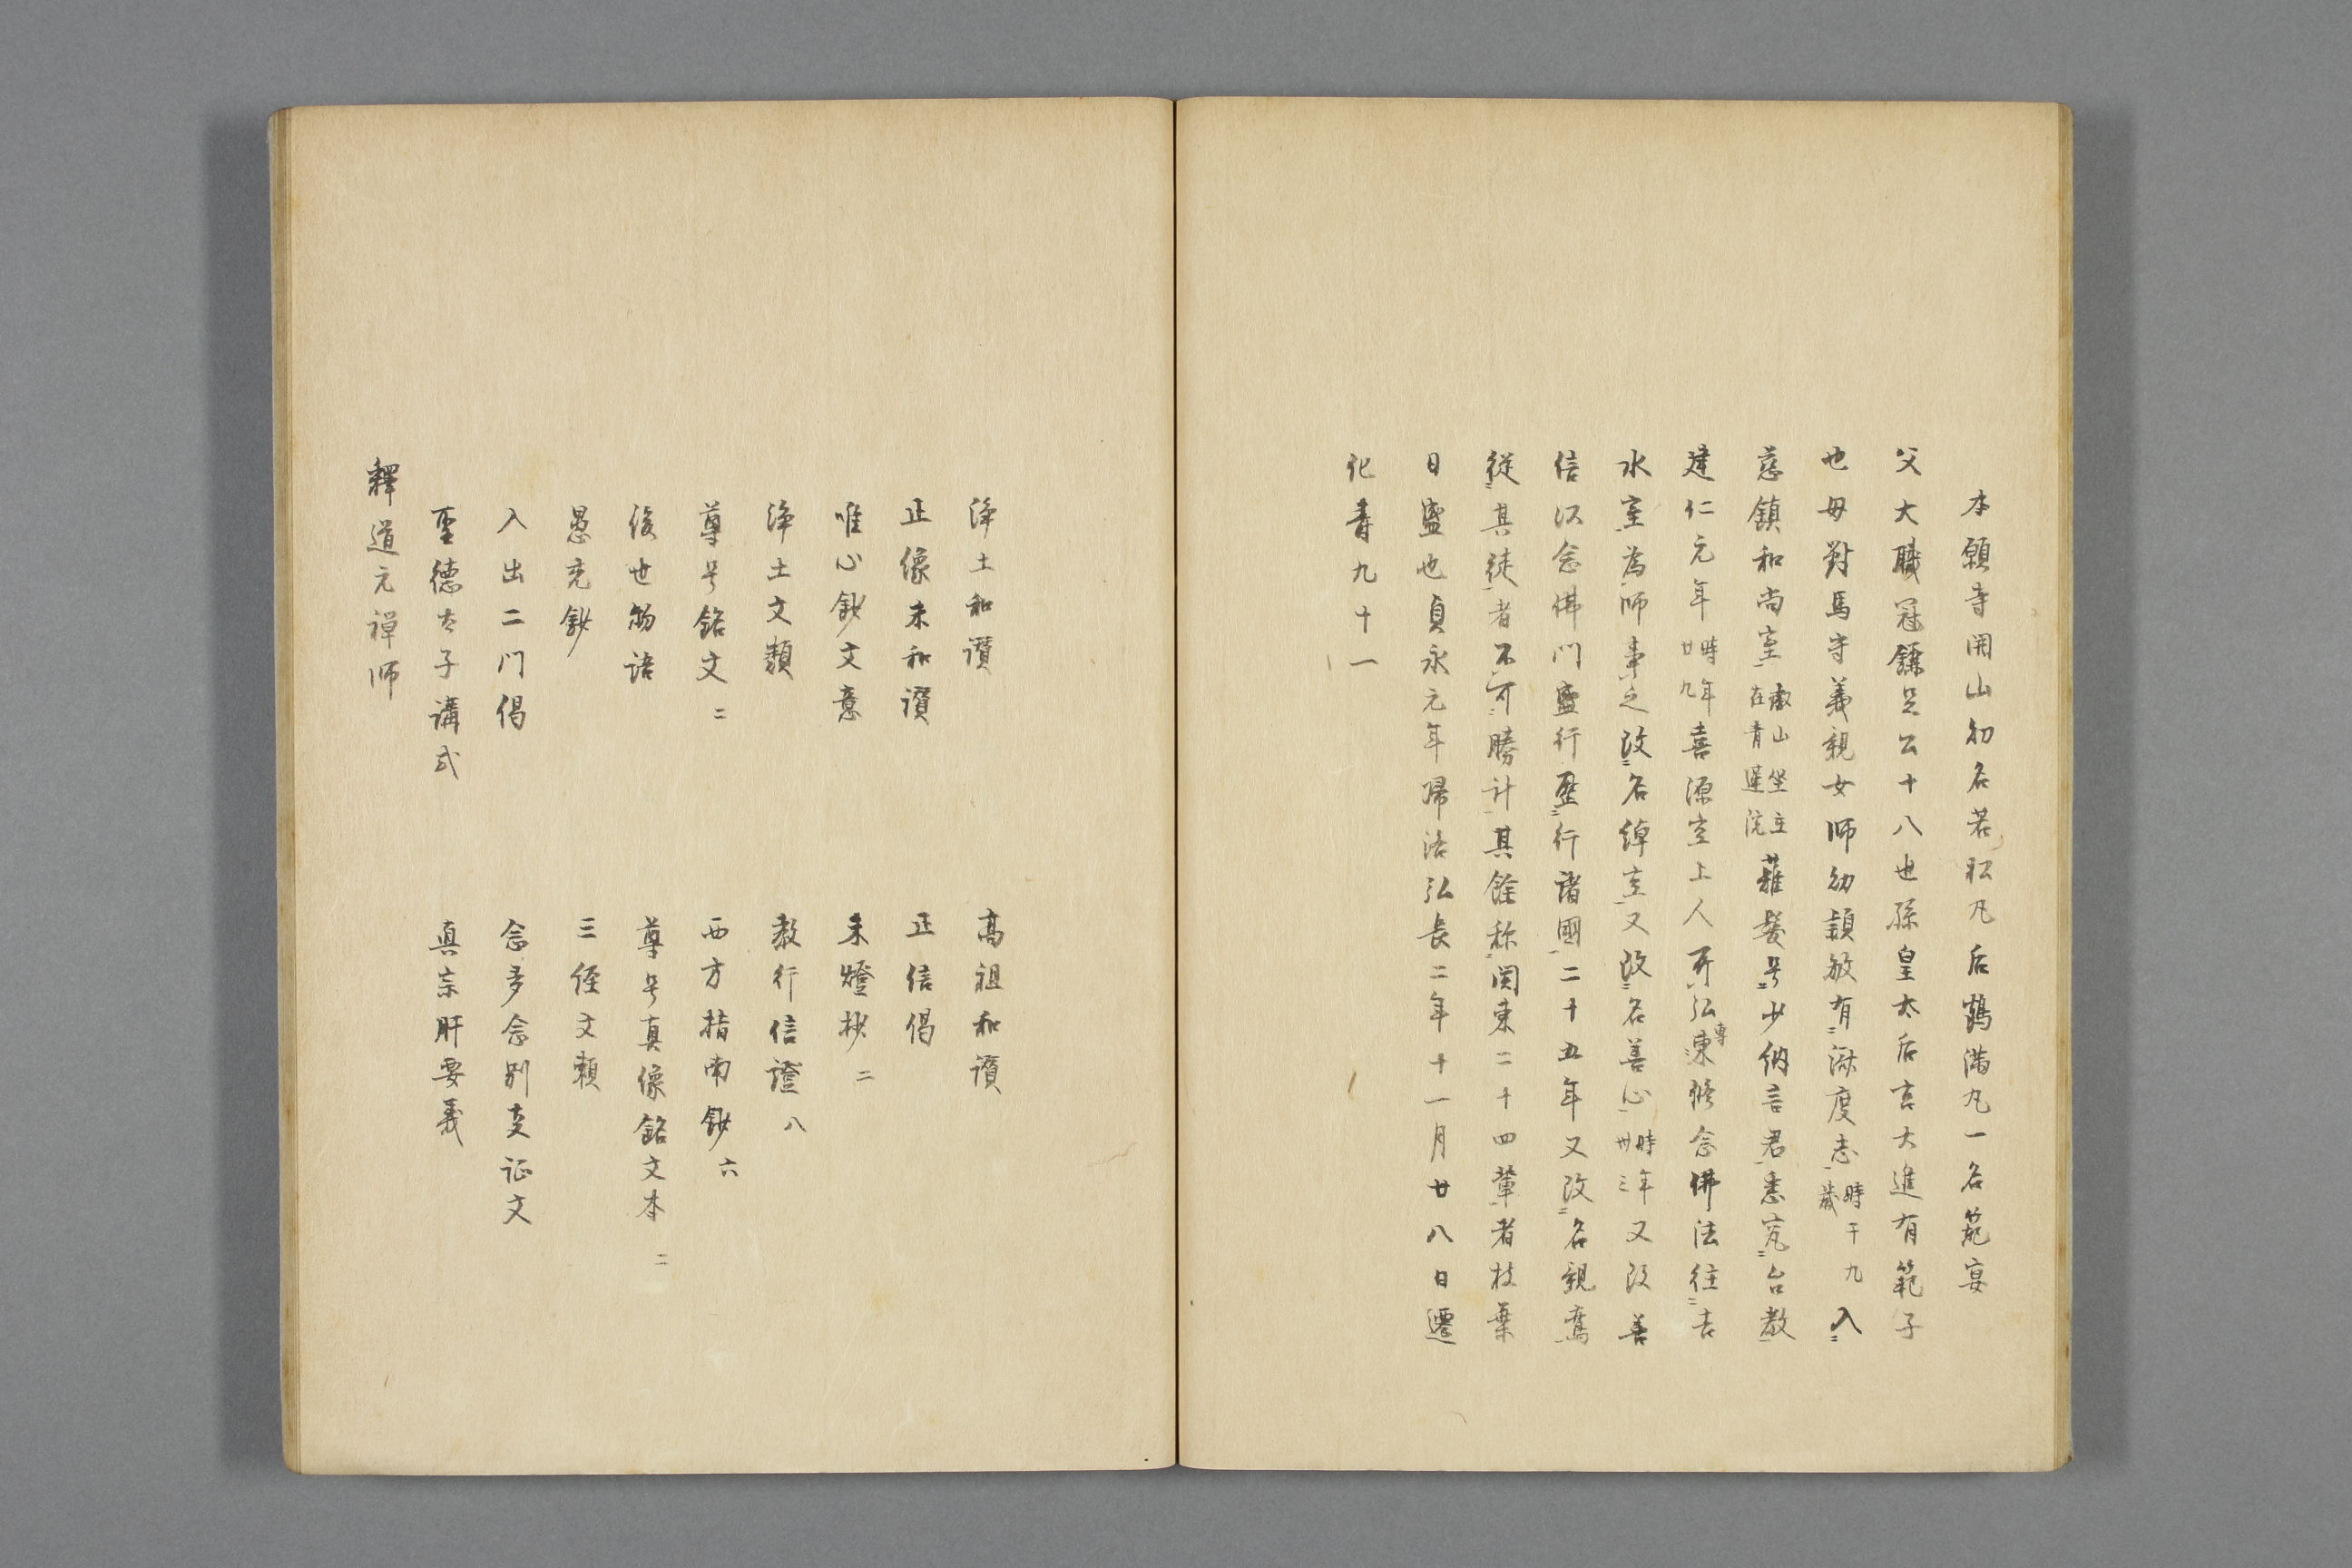 本願寺開山初名若松凡后鶴満凡一名範宴
父大職冠鎌足公十八世孫皇太后宮大進有範子
也母對馬守義親女師幼穎敏有淑度志時于九歳入
慈鎮和尚室叡山坐主在青蓮院薙髪号少納言君悉究台教
建仁元年時年廿九喜源空上人所弘専修念佛法往吉
水室為師事之改名綽空又改名善心時年卅三又改善
信以念佛門盛行歴行諸國二十五年又改名親鸞
從其徒者不可勝計其餘称関東二十四輩者枝葉
日盛也貞永元年帰洛弘長二年十一月廿八日遷
化壽九十一
浄土和讃 高祖和讃
正像末和讃 正信偈
唯心鈔文意 末燈抄二
浄土文類 教行信證八
尊号銘文二 西方指南鈔六
後世物語 尊号真像銘文本二
愚禿鈔 三経文類
入出二門偈 念多念別文証文
聖徳太子講式 真宗肝要義
釋道元禅師